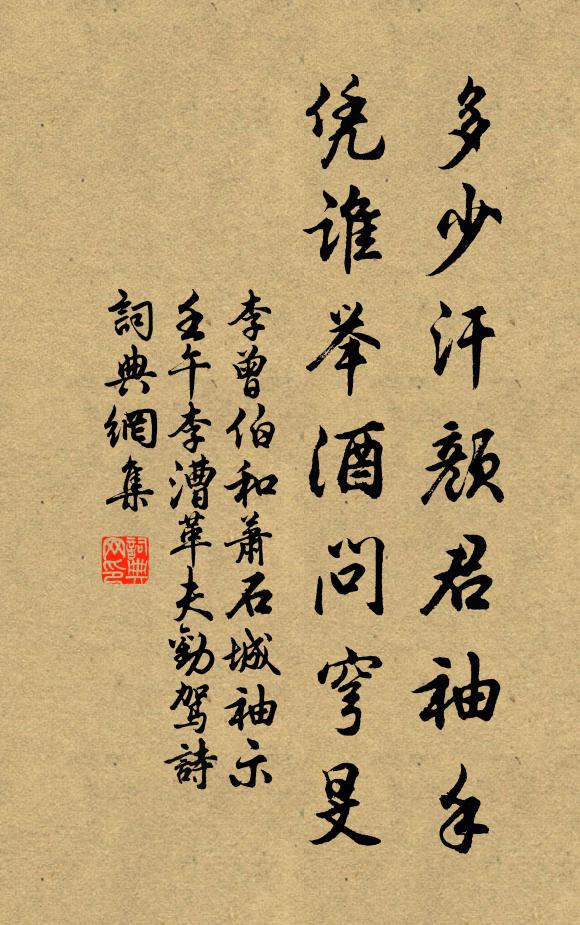 多少汗颜君袖手
凭谁举酒问穹旻
李曾伯和萧石城袖示
壬午李漕革夫勸駕詩
詞典網集
詞典
网印